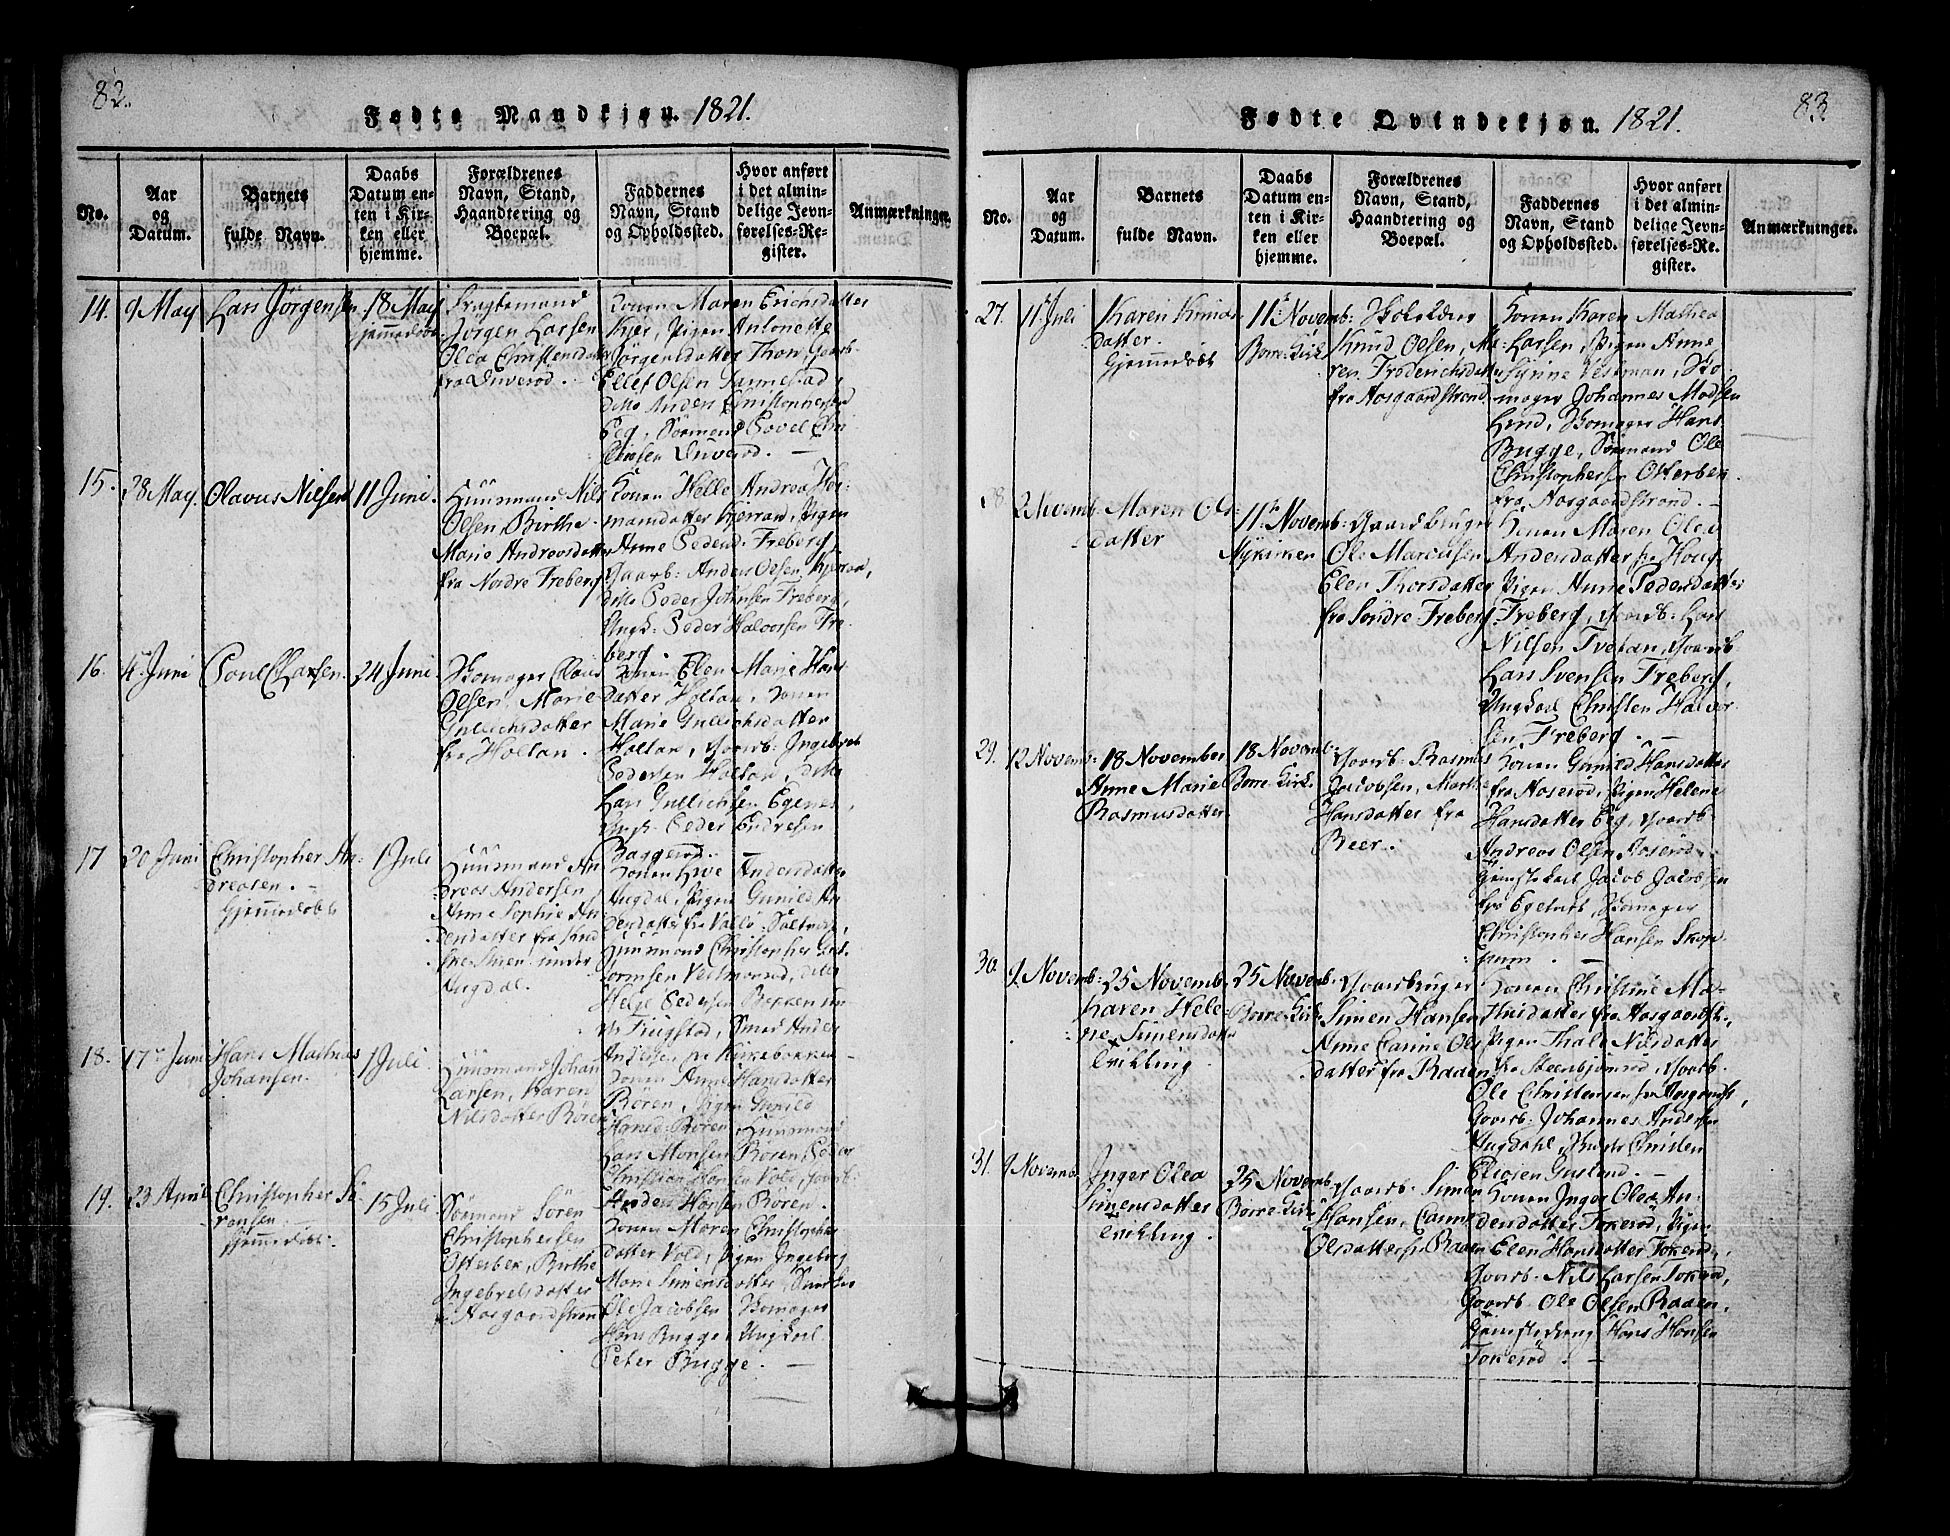 82.
Fødte Mandkjøn. 1821.
No.
Aar
og
Datum.
Barnets
fulde Navn.
Daabs
Datum en-
ten i Kir-
ken eller
hjemme.
Forældrenes
Navn, Stand,
Haandtering og
Boepæl.
Faddernes
Navn, Stand
og Opholdssted.
Hvor anført
i det almin-
delige Jevn-
førelses-Re-
gister.
Anmærkninger.
14.
9 May
Lars Jørgensen
18 May
Hjemmedøbt
Jørgen Larsen
Olea Christensdatter
fra Duverød.
Konen Maren Erichsdatter
Kjær, Pigen Antonette
Jørgensdatter Thon, Gaarb.
Ellef Olsen Sannestad,
ditto Anders Christophersen
Eeg, Sørmand Povel Chri-
stensen Duverød. —
15.
28 May.
Olavus Nilsen
11 Juni.
Huusmand Nils
Olsen, Birthe
Marie Andreasdatter
fra Nordre Freberg
Konen Helle Andrea Her-
mansdatter Hjerran, Pigen
Anne Pedersd. Freberg,
Gaarb: Anders Olsen Hjerran,
ditto Peder Johnsen Freberg,
Ungk: Peder Halvorsen Fre-
berg
16.
4 Juni
Poul Clausen.
24 Juni.
Skomager Claus
Olsen, Marie
Gullichsdatter
fra Holtan.
Konen Elen Marie Hans-
datter Holtan, Konen
Marie Gullichsdatter
Holtan, Gaarb: Ingebret
Pedersen Holtan, ditto
Lars Gullichsen Egenes,
Ungk. Peder Endresen
Baggerød. —
17
20 Juni
Christopher An-
dreasen. —
Hjemmedøbt
1 Juli
Huusmand An-
dreas Andersen
Anne Sophie An-
dersdatter fra
under
Augdal.
Konen Andersdatter
Augdal, Pigen Gunild An-
dersdatter fra Vallø Saltverk,
Huusmand Christopher
ditto
Helge Pedersen Bekken un-
der Fuugstad, Smed Anders
Andersen fra Kirkebakken
18.
17 Juni
Hans Mathias
Johansen.
1 Juli.
Huusmand Johan
Larsen, Karen
Nilsdatter Røren
Konen Anne Hansdatter
Røren, Pigen Gunild
Hansd: Røren, Huusmand
Lars Monsen Røren Peder
Christian Hansen Vold, Gaarb:
Anders Hansen Røren.
19.
23 April
Christopher Sø-
rensen. —
Hjemmedøbt.
15 Juli
Sørmand Sören
Christophersen
Østerbek, Birthe
Ingebretsdatter
fr Aasgaardstrand
Konen Maren Christophers-
datter Vold, Pigen Ingeborg
Marie Simensdatter,
Ole Jacobsen Skomager
Hans Bugge, Ungkarl
Peter Bugge. —
83
Fødte Qvindekjøn. 1821.
No.
Aar
og
Datum.
Barnets
fulde Navn.
Daabs
Datum en-
ten i Kir-
ken eller
hjemme.
Forældrenes
Navn, Stand,
Haandtering og
Boepæl.
Faddernes
Navn, Stand
og Opholdssted.
Hvor anført
i det almin-
delige Jevn-
førelses-Re-
gister.
Anmærkninger.
27.
11 Juli
Karen Knuds-
datter.
Hjemmedøbt
11 Novemb:
Borre Kirk
Skoleholder
Knud Olsen, Ma-
ren Frederichsdatter
fra Aasgaardstrand
Konen Karen Mathea
Larsen, Pigen Anne
Synne Vestman, Sko-
mager Johannes Madsen
Lind, Skomager Hans
Bugge, Sørmand Ole
Christophersen Østerbek
fra Aasgaardstrand. —
28
2 Novemb:
Maren Ols-
datter
11 Novemb:
Nykirken
Gaardbruger
Ole Marcusen
Elen Thorsdatter
fra Søndre Freberg
Konen Maren Olea
Andersdatter fra Houg,
Pigen Anne Pedersdatter
Freberg, Gaardb: Lars
Nilsen Tveitan, Gaarb.
Lars Svensen Freberg,
Ungkarl Christen Halvor-
sen Freberg. —
29.
12 Novemb:
18 November
Anne Marie
Rasmusdatter
18 Novemb:
Borre Kirk.
Gaarb. Rasmus
Jacobsen, Marthe
Hansdatter fra
Beer.
Konen Gunild Hansdatter
fra Aaserød, Pigen Helene
Hansdatter Eeg, Gaarb
Andreas Olsen Roserød,
Jacob Jacobsen
fra Skomager
Christopher Hansen Skop-
pum. —
30.
9 Novemb:
25 Novemb.
Karen Hele-
ne Simensdatter
Tvilling
25 Novemb.
Borre Kirk
Gaardbruger
Simen Hansen
Anne Canne Ols-
datter fra Raaen
Konen Christine Ma-
thisdatter fra Aasgaardst.,
Pigen Thale Nilsdatter
fra Steensbjønrød, Gaarb.
Ole Christensen fra Aasgaardst,
Gaarb. Johannes Andersen
Augdahl, Christen
31.
9 Novemb
Inger Olea
Simensdatter
Tvilling.
25 Novemb.
Borre Kirk
Gaarb. Simen
Hansen, Canne
Olsdatter fr Raaen
Konen Inger Olea An-
dersdatter Tokerød, Pigen
Elen Hansdatter Tokerød,
Gaarb. Nils Larsen Tokerød,
Gaarb. Ole Olsen Raaen,
Hans Hansen
Tokerød. —